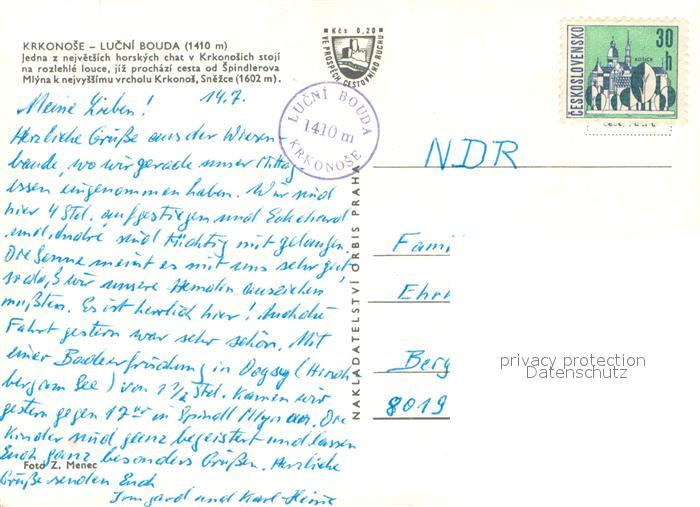 KRKONOŠE – LUČNÍ BOUDA (1410 m)
Jedna z největších horských chat v Krkonoších stojí
na rozlehlé louce, jíž prochází cesta od Špindlerova
Mlýna k nejvyššímu vrcholu Krkonoš, Sněžce (1602 m).
Meine Lieben! 14.7.
Herzliche Grüße aus der Wiesen-
baude, wo wir gerade unser Mittag-
essen eingenommen haben. Wir sind
hier 4 Std. aufgestiegen und Eckehard
und André sind tüchtig mit gelaufen.
Die Sonne meint es mit uns sehr gut,
sodaß wir unsere Hemden ausziehen
mußten. Es ist herrlich hier! Auch die
Fahrt gestern war sehr schön. Mit
einer Badeerfrischung in Doksy (Hirsch-
berg am See) von 1 1/2 Std. kamen wir
gestern gegen 17 Uhr in Spindl Mlyn an. Die
Kinder sind ganz begeistert und lassen
Euch ganz besonders Grüßen. Herzliche
Grüße senden Euch
Irmgard und Karl-Heinz
Foto Z. Menec
Kčs 0,20
VE PROSPĚCH CESTOVNÍHO RUCHU
LUČNÍ BOUDA
1410 m
KRKONOŠE
NAKLADATELSTVÍ ORBIS PRAHA
ČESKOSLOVENSKO
30 h
KOŠICE
NDR
Fami
Ehr
Berg
8019
privacy protection
Datenschutz